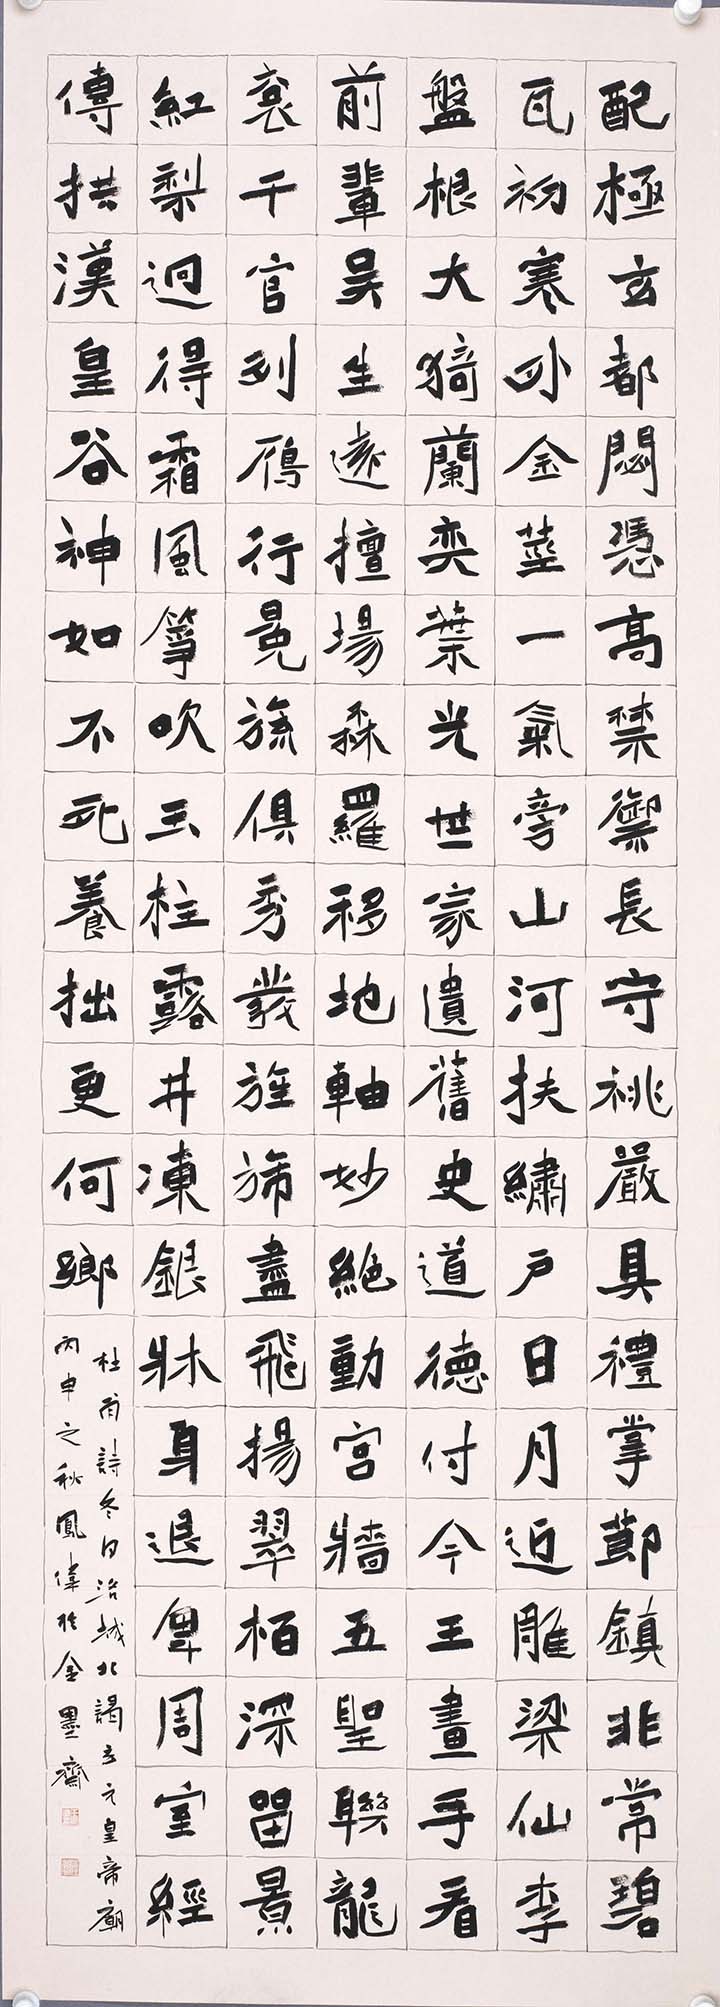 配極玄都閟憑高禁籞長守祧嚴具禮掌節鎮非常碧
瓦初寒外金莖一氣旁山河扶繡戶日月近雕梁仙李
盤根大猗蘭奕葉光世家遺舊史道德付今王畫手看
前輩吳生遠擅場森羅移地軸妙絕動宮牆五聖聯龍
袞千官列雁行冕旒俱秀發旌旆盡飛揚翠柏深留景
紅梨迥得霜風箏吹玉柱露井凍銀牀身退卑周室經
傳拱漢皇谷神如不死養拙更何鄉
杜甫詩冬日洛城北謁玄元皇帝廟
丙申之秋鳳偉於金墨齋